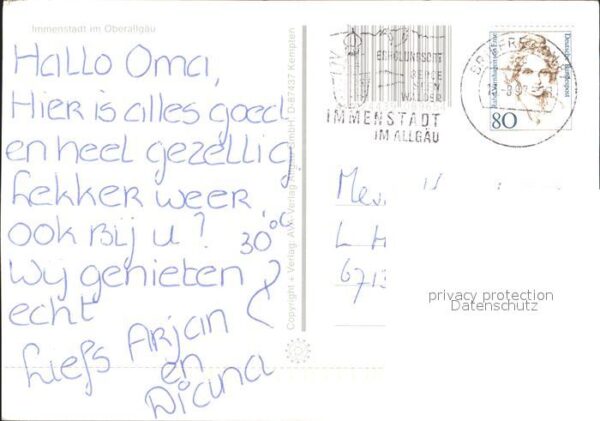 Immenstadt im Oberallgäu
Hallo Oma,
Hier is alles goed
en heel gezellig
Lekker weer,
ook Bij u? 30°C
Wij genieten
echt
Liefs Arjan
en
Diana
Copyright + Verlag: AVA-Verlag Allgäu GmbH, D-87437 Kempten
ERHOLUNGSORT
BERGE
SEEN
WÄLDER
IMMENSTADT
IM ALLGÄU
Deutsche Bundespost
80
L H
6713
privacy protection
Datenschutz